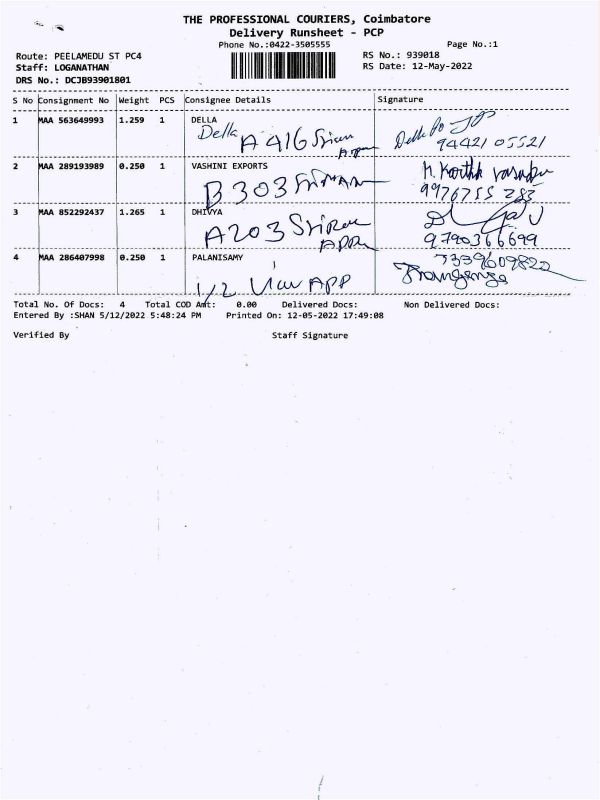 THE PROFESSIONAL COURIERS, Coimbatore
Delivery Runsheet - PCP
Phone No.:0422-3505555 Page No.:1
Route: PEELAMEDU ST PC4 RS No.: 939018
Staff: LOGANATHAN RS Date: 12-May-2022
DRS No.: DCJB93901801
S No Consignment No Weight PCS Consignee Details Signature
1 MAA 563649993 1.259 1 DELLA
Della A 416 94421 05521
2 MAA 289193989 0.250 1 VASHINI EXPORTS
B 303 9976755 283
3 MAA 852292437 1.265 1 DHIVYA
A203 APP 9790366699
4 MAA 286407998 0.250 1 PALANISAMY 7339609822
1/2 View APP
Total No. Of Docs: 4 Total COD Amt: 0.00 Delivered Docs: Non Delivered Docs:
Entered By :SHAN 5/12/2022 5:48:24 PM Printed On: 12-05-2022 17:49:08
Verified By Staff Signature